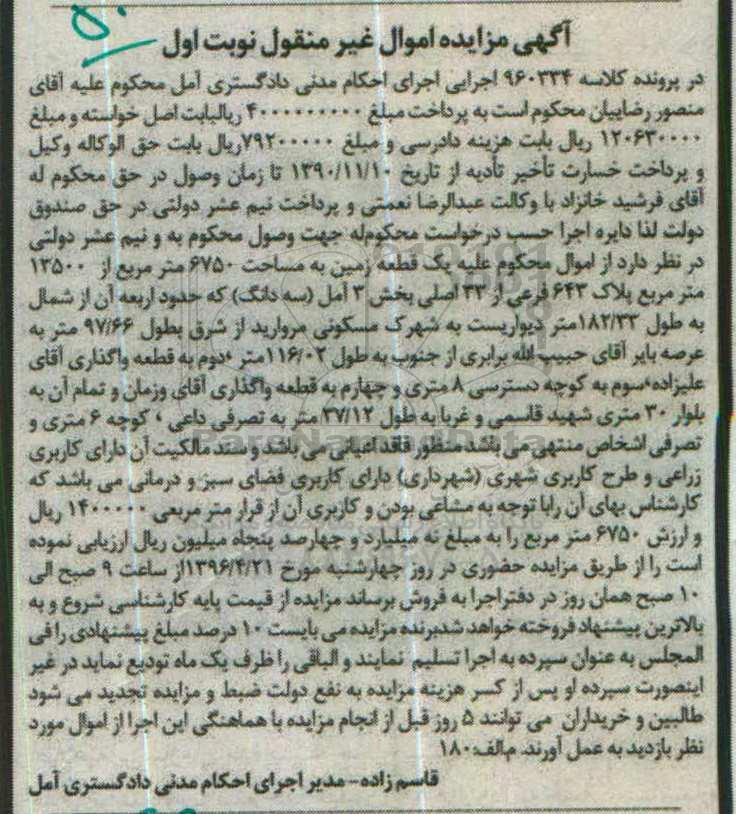 آگهی مزایده اموال غیر منقول نوبت اول
در پرونده کلاسه ۹۶۰۳۳۴ اجرایی اجرای احکام مدنی دادگستری آمل محکوم علیه آقای
منصور رضاییان محکوم است به پرداخت مبلغ ۴۰۰۰۰۰۰۰۰۰ ریالبابت اصل خواسته و مبلغ
۱۲۰۶۳۰۰۰۰ ریال بابت هزینه دادرسی و مبلغ ۷۹۲۰۰۰۰۰ریال بابت حق الوکاله وکیل
و پرداخت خسارت تأخیر تأدیه از تاریخ ۱۳۹۰/۱۱/۱۰ تا زمان وصول در حق محکوم له
آقای فرشید خانزاد با وکالت عبدالرضا نعمتی و پرداخت نیم عشر دولتی در حق صندوق
دولت لذا دایره اجرا حسب درخواست محکوم‌له جهت وصول محکوم به و نیم عشر دولتی
در نظر دارد از اموال محکوم علیه یک قطعه زمین به مساحت ۶۷۵۰ متر مربع از ۱۳۵۰۰
متر مربع پلاک ۶۴۳ فرعی از ۳۳ اصلی بخش ۳ آمل (سه دانگ) که حدود اربعه آن از شمال
به طول ۱۸۲/۳۳متر دیواریست به شهرک مسکونی مروارید از شرق بطول ۹۷/۶۶ متر به
عرصه بایر آقای حبیب الله برابری از جنوب به طول ۱۱۶/۰۲متر ،دوم به قطعه واگذاری آقای
علیزاده،سوم به کوچه دسترسی ۸ متری و چهارم به قطعه واگذاری آقای وزمان و تمام آن به
بلوار ۳۰ متری شهید قاسمی و غربا به طول ۳۷/۱۲ متر به تصرفی داعی ، کوچه ۶ متری و
تصرفی اشخاص منتهی می باشد منظور فاقد اعیانی می باشد و سند مالکیت آن دارای کاربری
زراعی و طرح کاربری شهری (شهرداری) دارای کاربری فضای سبز و درمانی می باشد که
کارشناس بهای آن رابا توجه به مشاعی بودن و کاربری آن از قرار متر مربعی ۱۴۰۰۰۰۰ ریال
و ارزش ۶۷۵۰ متر مربع را به مبلغ نه میلیارد و چهارصد پنجاه میلیون ریال ارزیابی نموده
است را از طریق مزایده حضوری در روز چهارشنبه مورخ ۱۳۹۶/۴/۲۱از ساعت ۹ صبح الی
۱۰ صبح همان روز در دفتراجرا به فروش برساند مزایده از قیمت پایه کارشناسی شروع و به
بالاترین پیشنهاد فروخته خواهد شدبرنده مزایده می بایست ۱۰ درصد مبلغ پیشنهادی را فی
المجلس به عنوان سپرده به اجرا تسلیم نمایند و الباقی را ظرف یک ماه تودیع نماید در غیر
اینصورت سپرده او پس از کسر هزینه مزایده به نفع دولت ضبط و مزایده تجدید می شود
طالبین و خریداران می توانند ۵ روز قبل از انجام مزایده با هماهنگی این اجرا از اموال مورد
نظر بازدید به عمل آورند. م/الف:۱۸۰
قاسم زاده- مدیر اجرای احکام مدنی دادگستری آمل